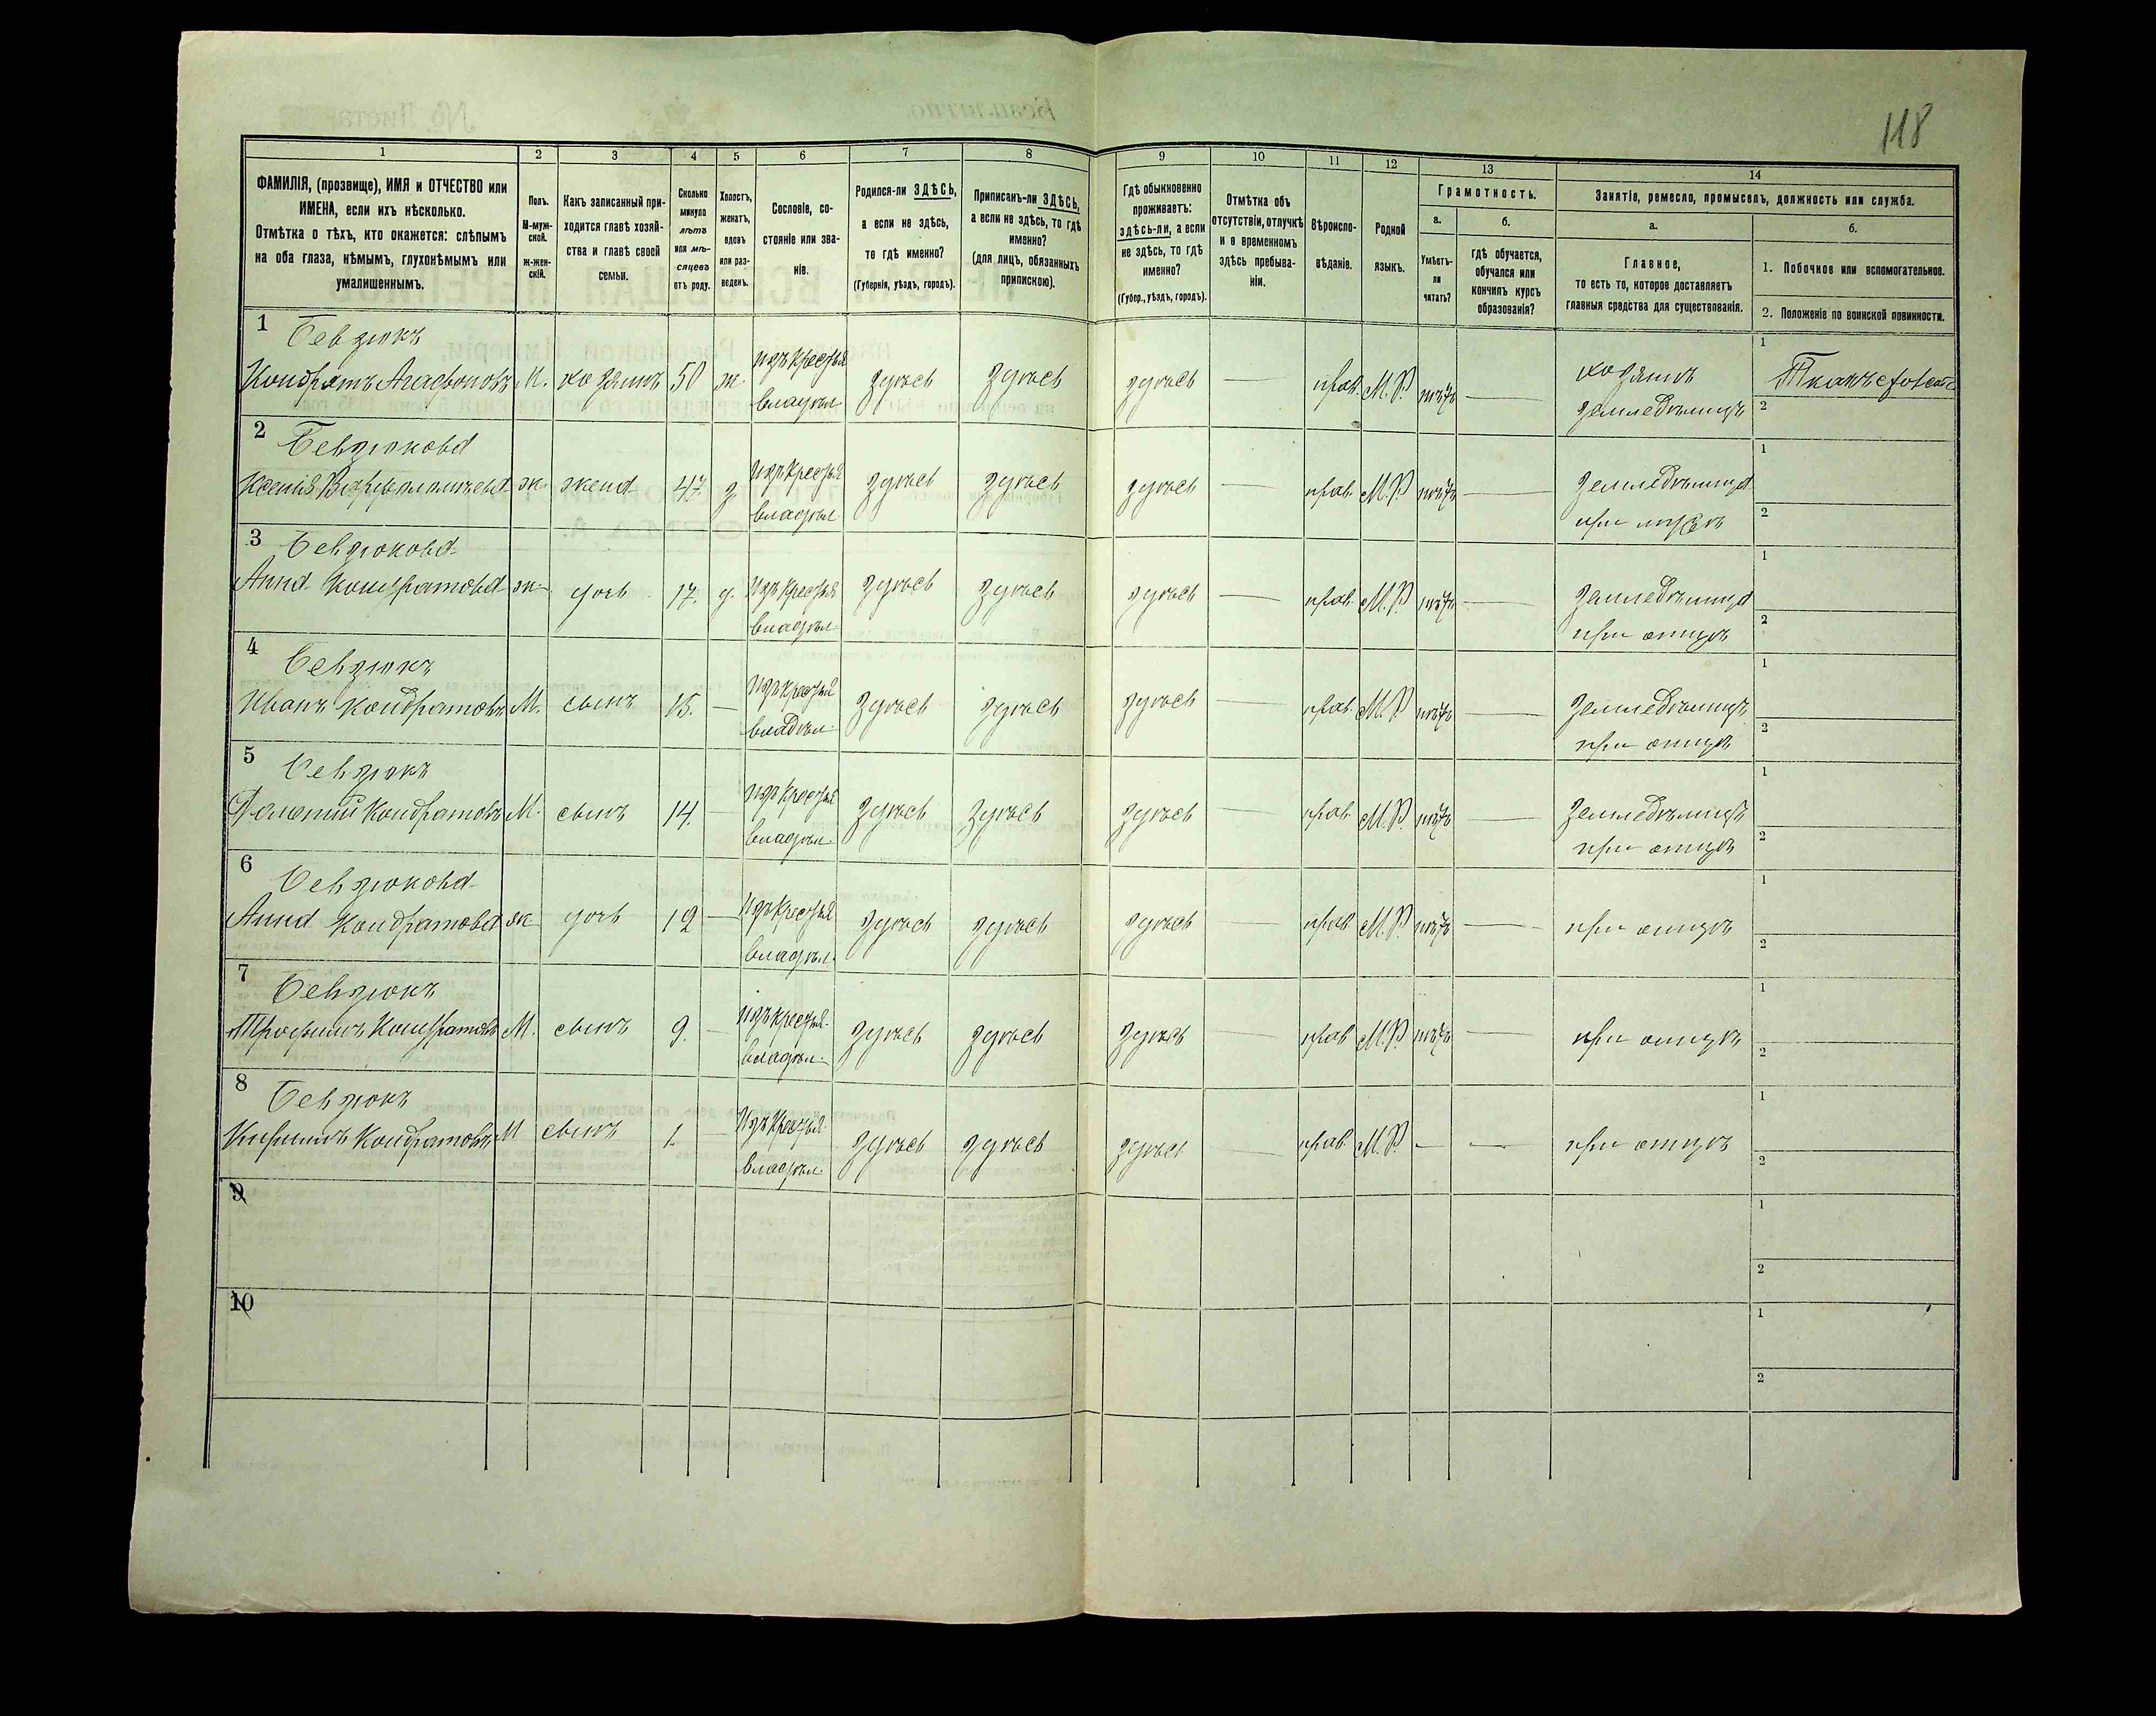 118
1 2 3 4 5 6 7 8 9 10 11 12 13 14
ФАМИЛІЯ, (прозвище), ИМЯ и ОТЧЕСТВО или
ИМЕНА, если ихъ нѣсколько.
Отмѣтка о тѣхъ, кто окажется: слѣпымъ
на оба глаза, нѣмымъ, глухонѣмымъ или
умалишеннымъ.
Полъ.
М-муж-
ской.
ж-жен-
скій.
Какъ записанный при-
ходится главѣ хозяй-
ства и главѣ своей
семьи.
Сколько
минуло
лѣтъ
или мѣ-
сяцевъ
отъ роду.
Холостъ,
женатъ,
вдовъ
или раз-
веденъ.
Сословіе, со-
стояніе или зва-
ніе.
Родился-ли ЗДѢСЬ,
а если не здѣсь,
то гдѣ именно?
(Губернія, уѣздъ, городъ).
Приписанъ-ли ЗДѢСЬ,
а если не здѣсь, то гдѣ
именно?
(для лицъ, обязанныхъ
припискою).
Гдѣ обыкновенно
проживаетъ:
здѣсь-ли, а если
не здѣсь, то гдѣ
именно?
(Губер., уѣздъ, городъ).
Отмѣтка объ
отсутствіи, отлучкѣ
и о временномъ
здѣсь пребыва-
ніи.
Вѣроиспо-
вѣданіе.
Родной
языкъ.
Грамотность.
а.
Умѣетъ-
ли
читать?
б.
гдѣ обучается,
обучался или
кончилъ курсъ
образованія?
Занятіе, ремесло, промыселъ, должность или служба.
а.
Главное,
то есть то, которое доставляетъ
главныя средства для существованія.
б.
1. Побочное или вспомогательное.
2. Положеніе по воинской повинности.
1 Бевзюкъ
Кондратъ Агафоновъ М. хозяинъ 50 ж. изъ крестья здѣсь здѣсь здѣсь — прав. М.Р. нѣтъ — хозяинъ 1
владѣл. земледѣлецъ 2
2 Бевзюкова
Ксенія ж. жена 47 з. изъ крестья здѣсь здѣсь здѣсь — прав. М.Р. нѣтъ — Земледѣлица 1
владѣл. при мужѣ 2
3 Бевзюкова
Анна Кондратова ж. дочь 17. д. изъ крестья здѣсь здѣсь здѣсь — прав. М.Р. нѣтъ — Земледѣлица 1
владѣл. при отцѣ 2
4 Бевзюкъ
Иванъ Кондратовъ М. сынъ 15. — изъ крестья здѣсь здѣсь здѣсь — прав. М.Р. нѣтъ — Земледѣлецъ 1
владѣл. при отцѣ 2
5 Бевзюкъ
Кондратовъ М. сынъ 14. — изъ крестья здѣсь здѣсь здѣсь — прав. М.Р. нѣтъ — Земледѣлецъ 1
владѣл. при отцѣ 2
6 Бевзюкова
Анна Кондратова ж. дочь 12 — изъ крестья здѣсь здѣсь здѣсь — прав. М.Р. нѣтъ — при отцѣ 1
владѣл. 2
7 Бевзюкъ
Трофимъ Кондратовъ М. сынъ 9. — изъ крестья здѣсь здѣсь здѣсь — прав. М.Р. нѣтъ — при отцѣ 1
владѣл. 2
8 Бевзюкъ
Кирилъ Кондратовъ М сынъ 1. — изъ крестья здѣсь здѣсь здѣсь — прав. М.Р. — — при отцѣ 1
владѣл. 2
9 1
2
10 1
2